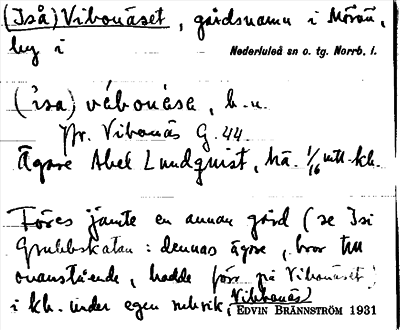 (Iså) Vibonäset, gårdsnamn i Mörån,
by i Nederluleå sn o. tg. Norrb. l.
(ìsa) vébonèsa, b.n.
Vibonäs G. 44.
Ägare Abel Lundqvist, hä. 1/16 mtl kb.
Föres jämte en annan gård (se Isi
Grubbskatan: dennas ägare, bror till
ovanstående, hadde förr på Vibonäset)
i kb. under egen rubrik, Vibbonäs)
EDVIN BRÄNNSTRÖM 1931